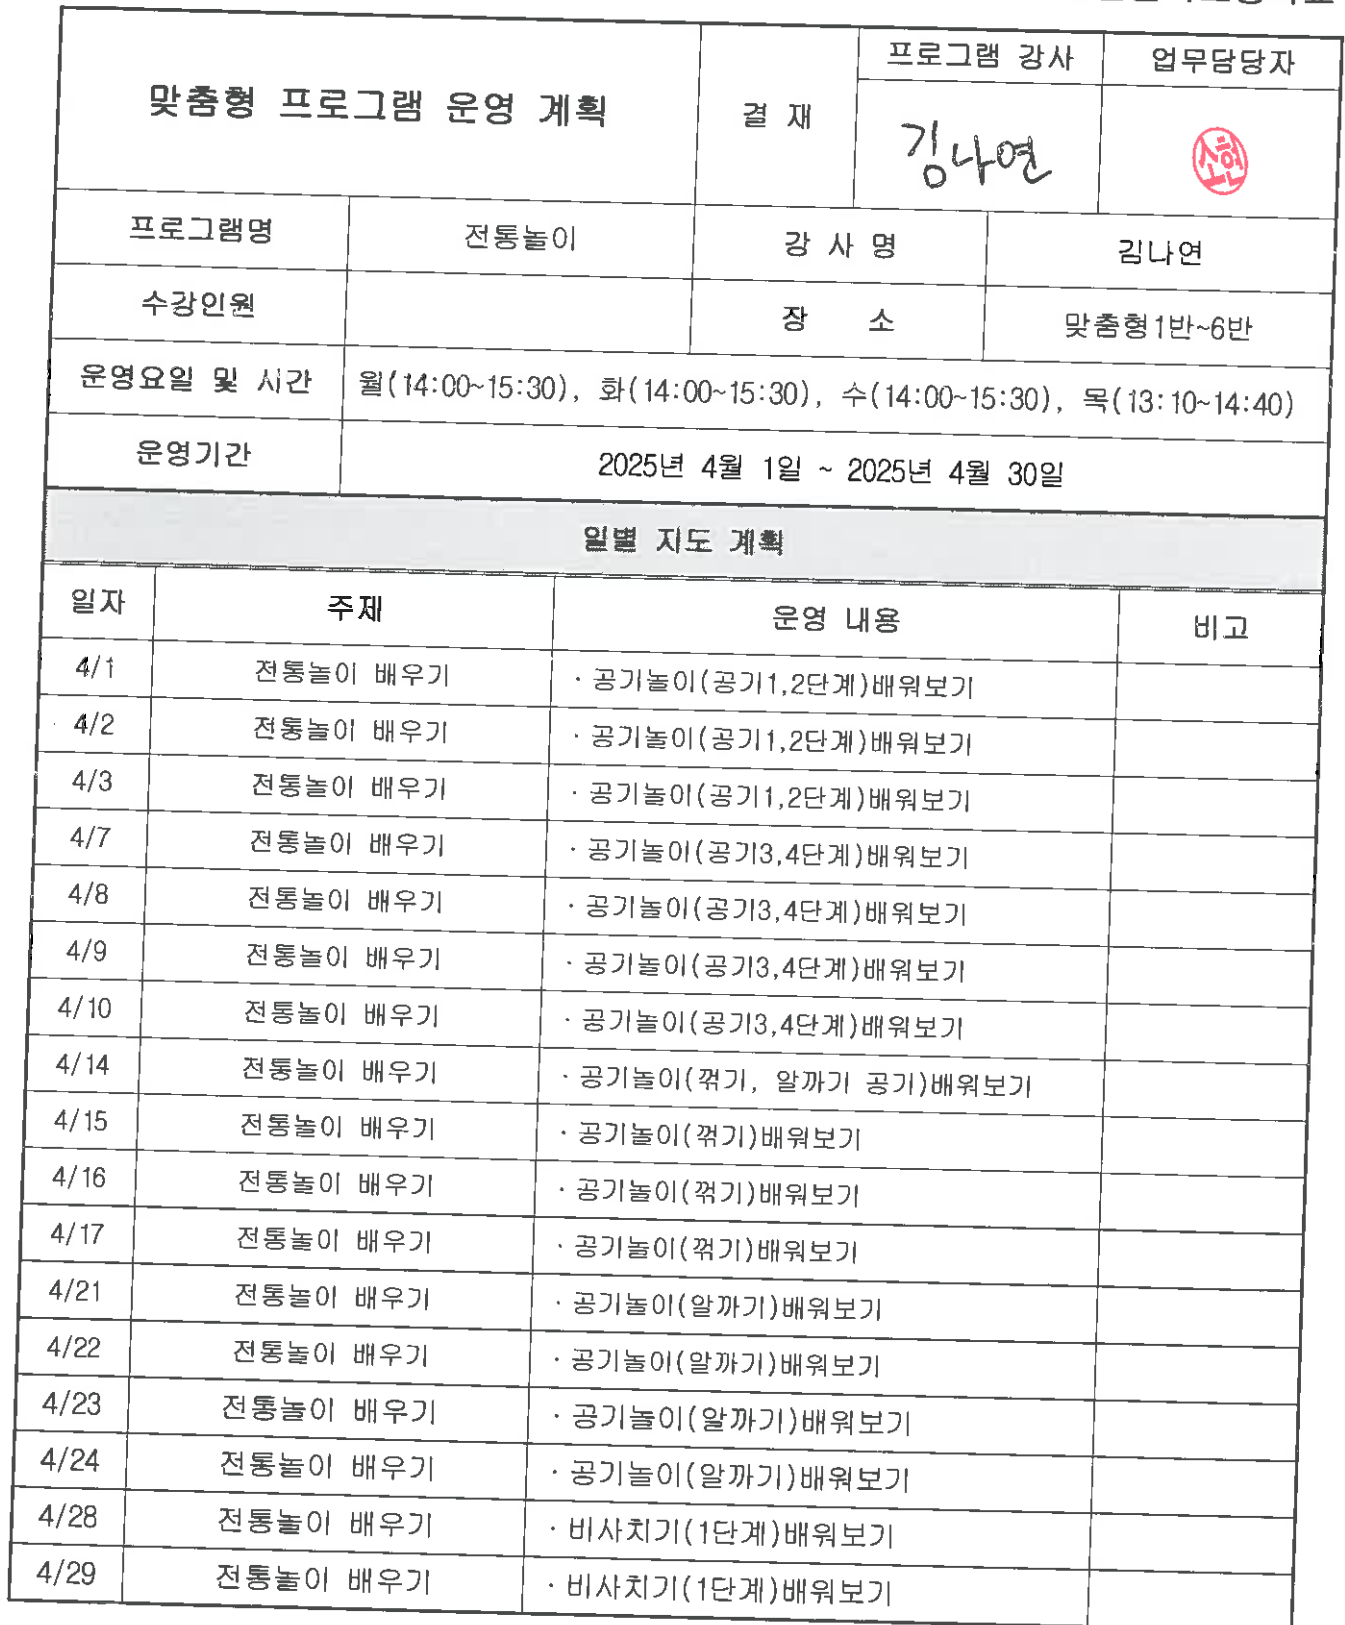 프로그램 강사 업무담당자
맞춤형 프로그램 운영 계획 결 재
김나연
프로그램명 전통놀이 강 사 명 김나연
수강인원 장 소 맞춤형1반~6반
운영요일 및 시간 월(14:00~15:30), 화(14:00~15:30), 수(14:00~15:30), 목(13:10~14:40)
운영기간 2025년 4월 1일 ~ 2025년 4월 30일
일별 지도 계획
일자 주제 운영 내용 비고
4/1 전통놀이 배우기 · 공기놀이(공기1,2단계)배워보기
4/2 전통놀이 배우기 · 공기놀이(공기1,2단계)배워보기
4/3 전통놀이 배우기 · 공기놀이(공기1,2단계)배워보기
4/7 전통놀이 배우기 · 공기놀이(공기3,4단계)배워보기
4/8 전통놀이 배우기 · 공기놀이(공기3,4단계)배워보기
4/9 전통놀이 배우기 · 공기놀이(공기3,4단계)배워보기
4/10 전통놀이 배우기 · 공기놀이(공기3,4단계)배워보기
4/14 전통놀이 배우기 · 공기놀이(꺾기, 알까기 공기)배워보기
4/15 전통놀이 배우기 · 공기놀이(꺾기)배워보기
4/16 전통놀이 배우기 · 공기놀이(꺾기)배워보기
4/17 전통놀이 배우기 · 공기놀이(꺾기)배워보기
4/21 전통놀이 배우기 · 공기놀이(알까기)배워보기
4/22 전통놀이 배우기 · 공기놀이(알까기)배워보기
4/23 전통놀이 배우기 · 공기놀이(알까기)배워보기
4/24 전통놀이 배우기 · 공기놀이(알까기)배워보기
4/28 전통놀이 배우기 · 비사치기(1단계)배워보기
4/29 전통놀이 배우기 · 비사치기(1단계)배워보기